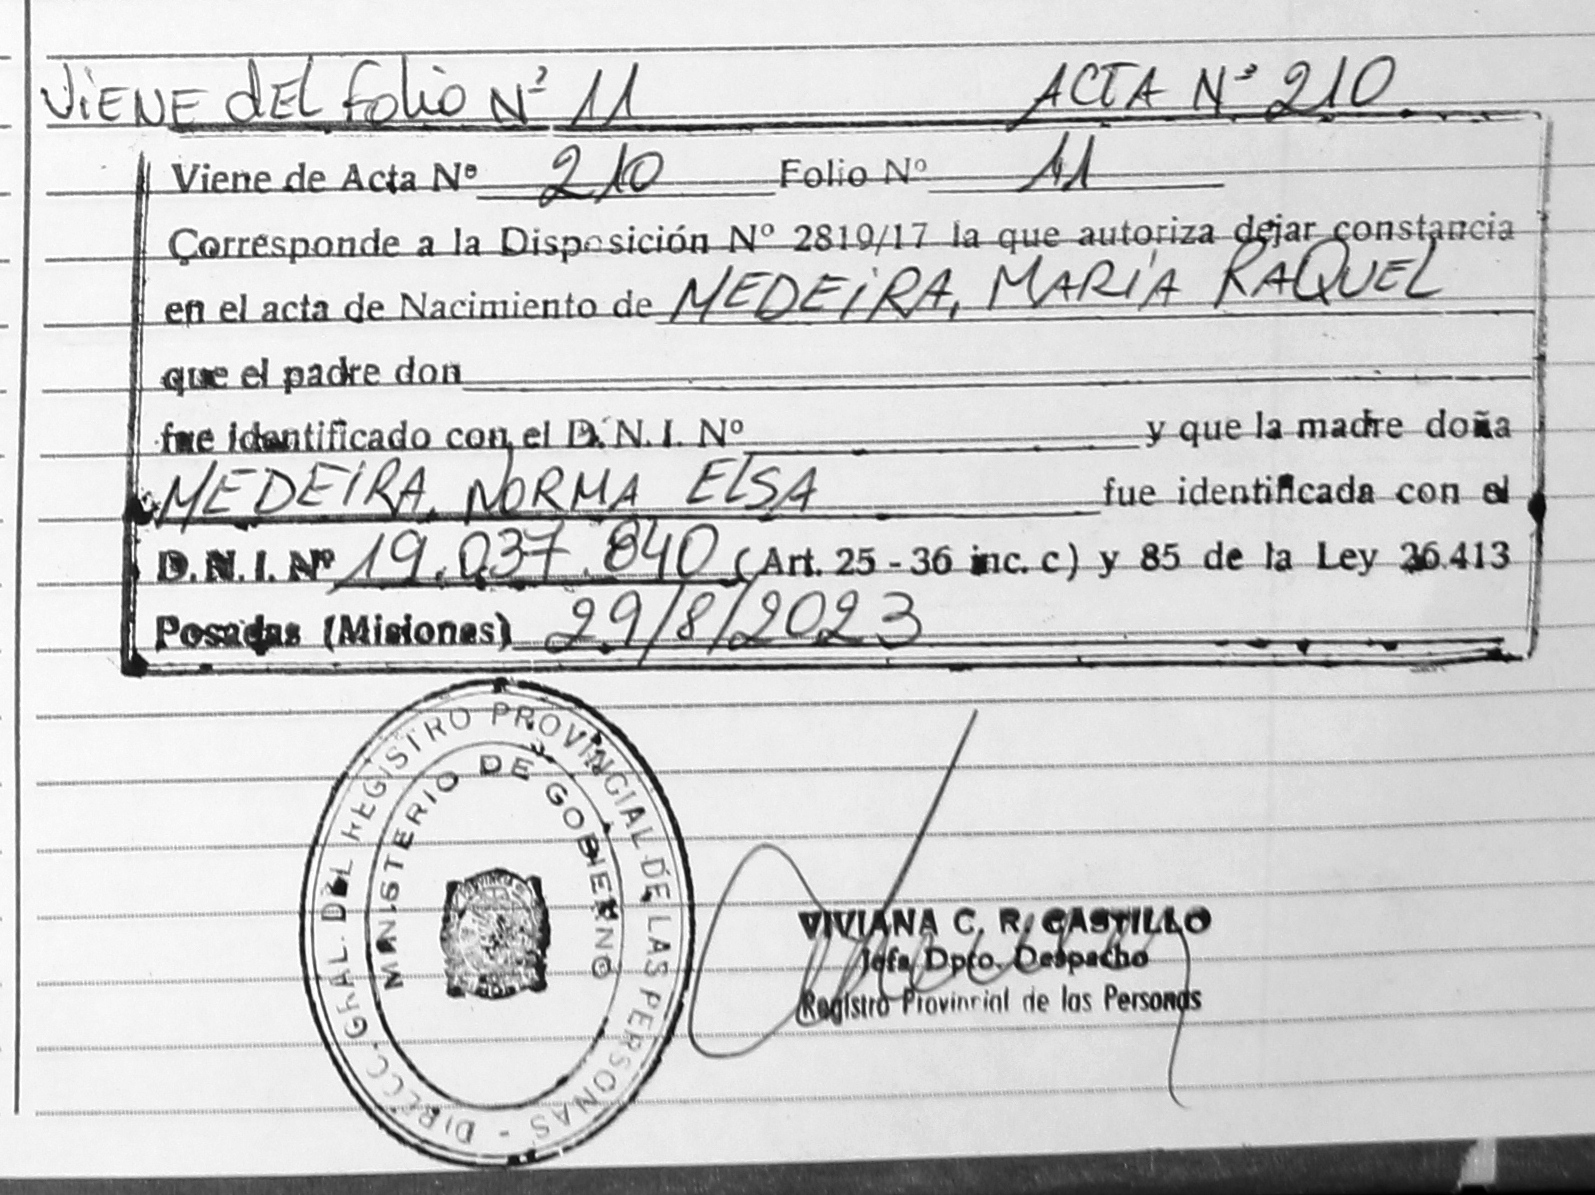 ViENE dEL foLio Nº 11 ACTA Nº 210
Viene de Acta Nº 210 Folio Nº 11
Corresponde a la Disposición Nº 2819/17 la que autoriza dejar constancia
en el acta de Nacimiento de MEDEiRA, MARíA RAQUEL
que el padre don
fue identificado con el D.N.I. Nº y que la madre doña
MEDEiRA, NORMA ELSA fue identificada con el
D.N.I. Nº 19.037.840 (Art. 25 - 36 inc. c) y 85 de la Ley 26.413
Posadas (Misiones) 29/8/2023
DIRECC. GRAL. DEL REGISTRO PROVINCIAL DE LAS PERSONAS -
MINISTERIO DE GOBIERNO
VIVIANA C. R. CASTILLO
Jefa Dpto. Despacho
Registro Provincial de las Personas